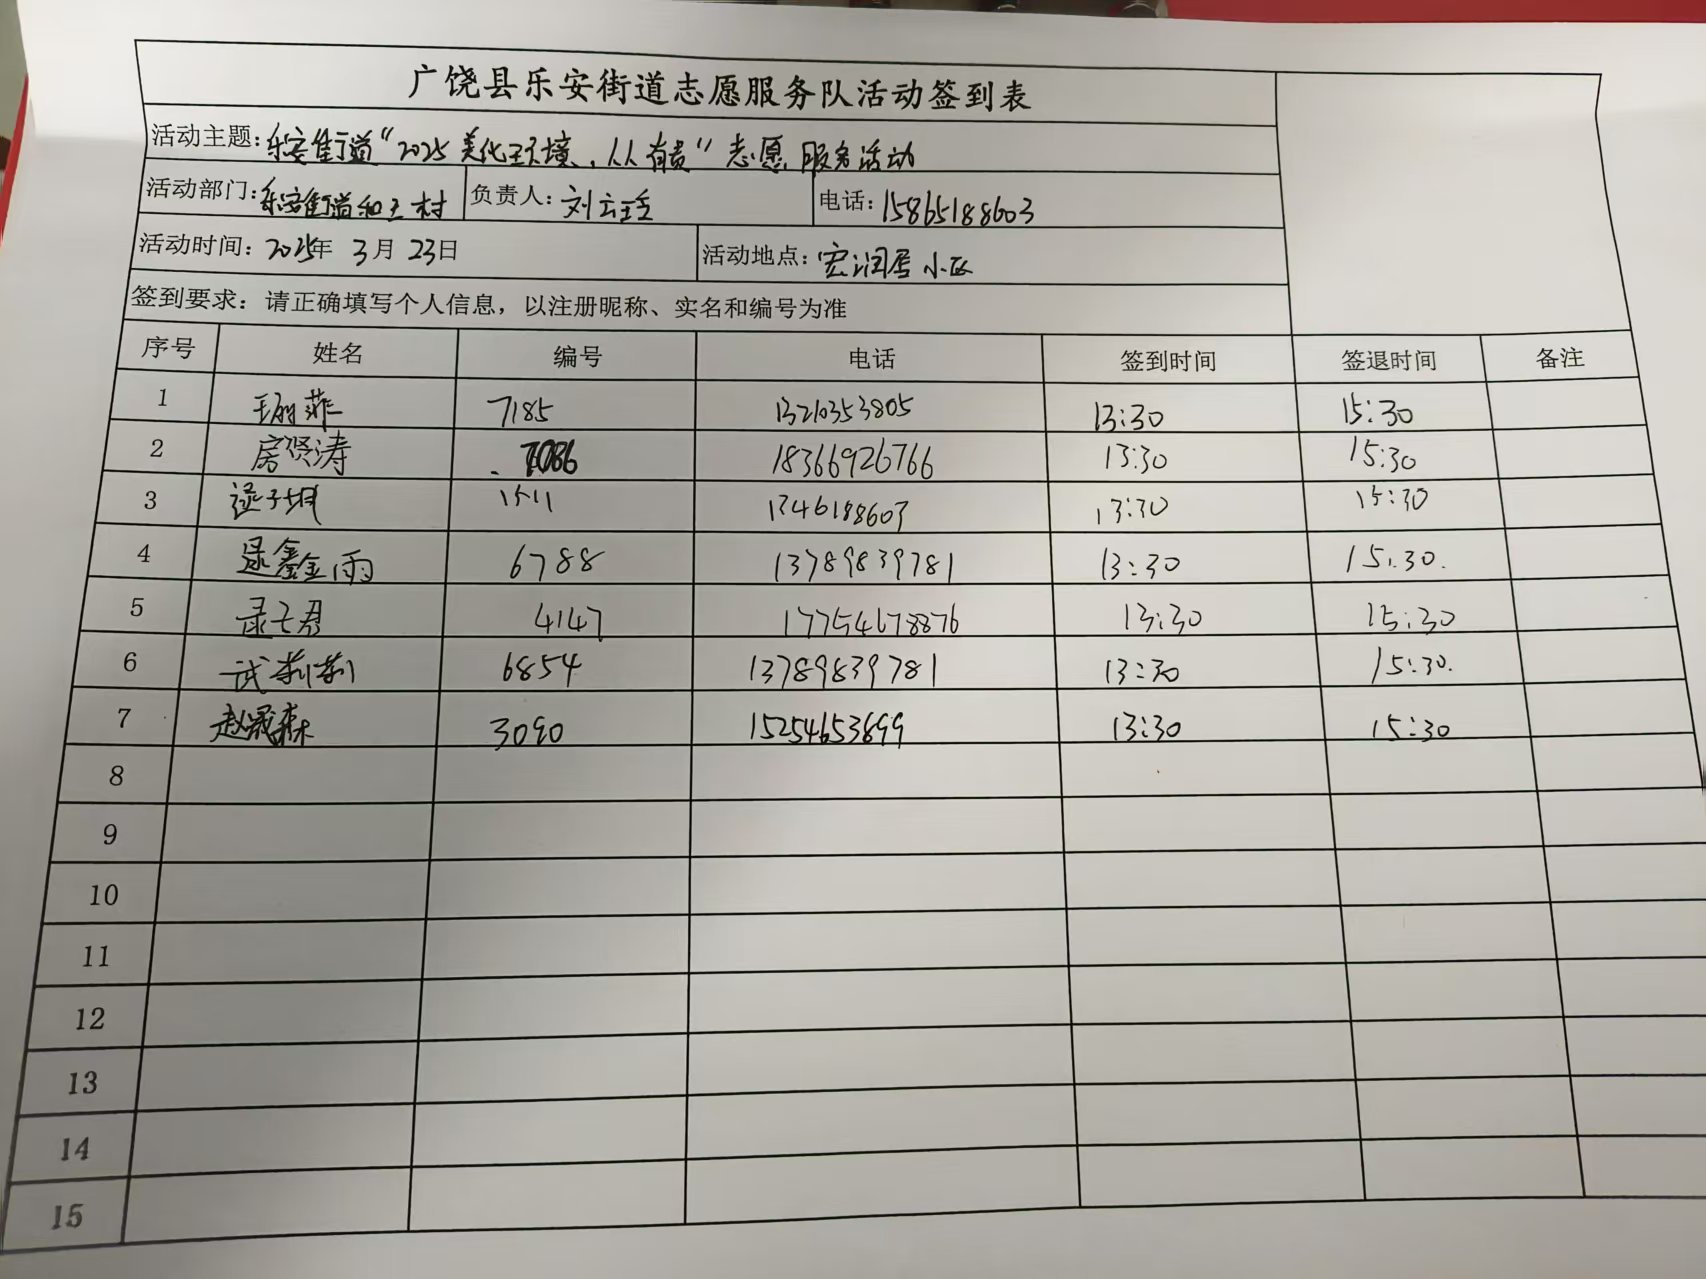 广饶县乐安街道志愿服务队活动签到表
活动主题：乐安街道“2025美化环境，人人有责”志愿服务活动
活动部门：乐安街道和王村 负责人：刘 电话：15865188603
活动时间：2025年3月23日 活动地点：宏润居小区
签到要求：请正确填写个人信息，以注册昵称、实名和编号为准
序号 姓名 编号 电话 签到时间 签退时间 备注
1 7185 13210353805 13:30 15:30
2 房贤涛 7086 18366926766 13:30 15:30
3 1511 13:30 15:30
4 6788 13789839781 13:30 15:30
5 4147 17754678876 13:30 15:30
6 6854 13789839781 13:30 15:30
7 赵晟森 3090 15254653899 13:30 15:30
8
9
10
11
12
13
14
15